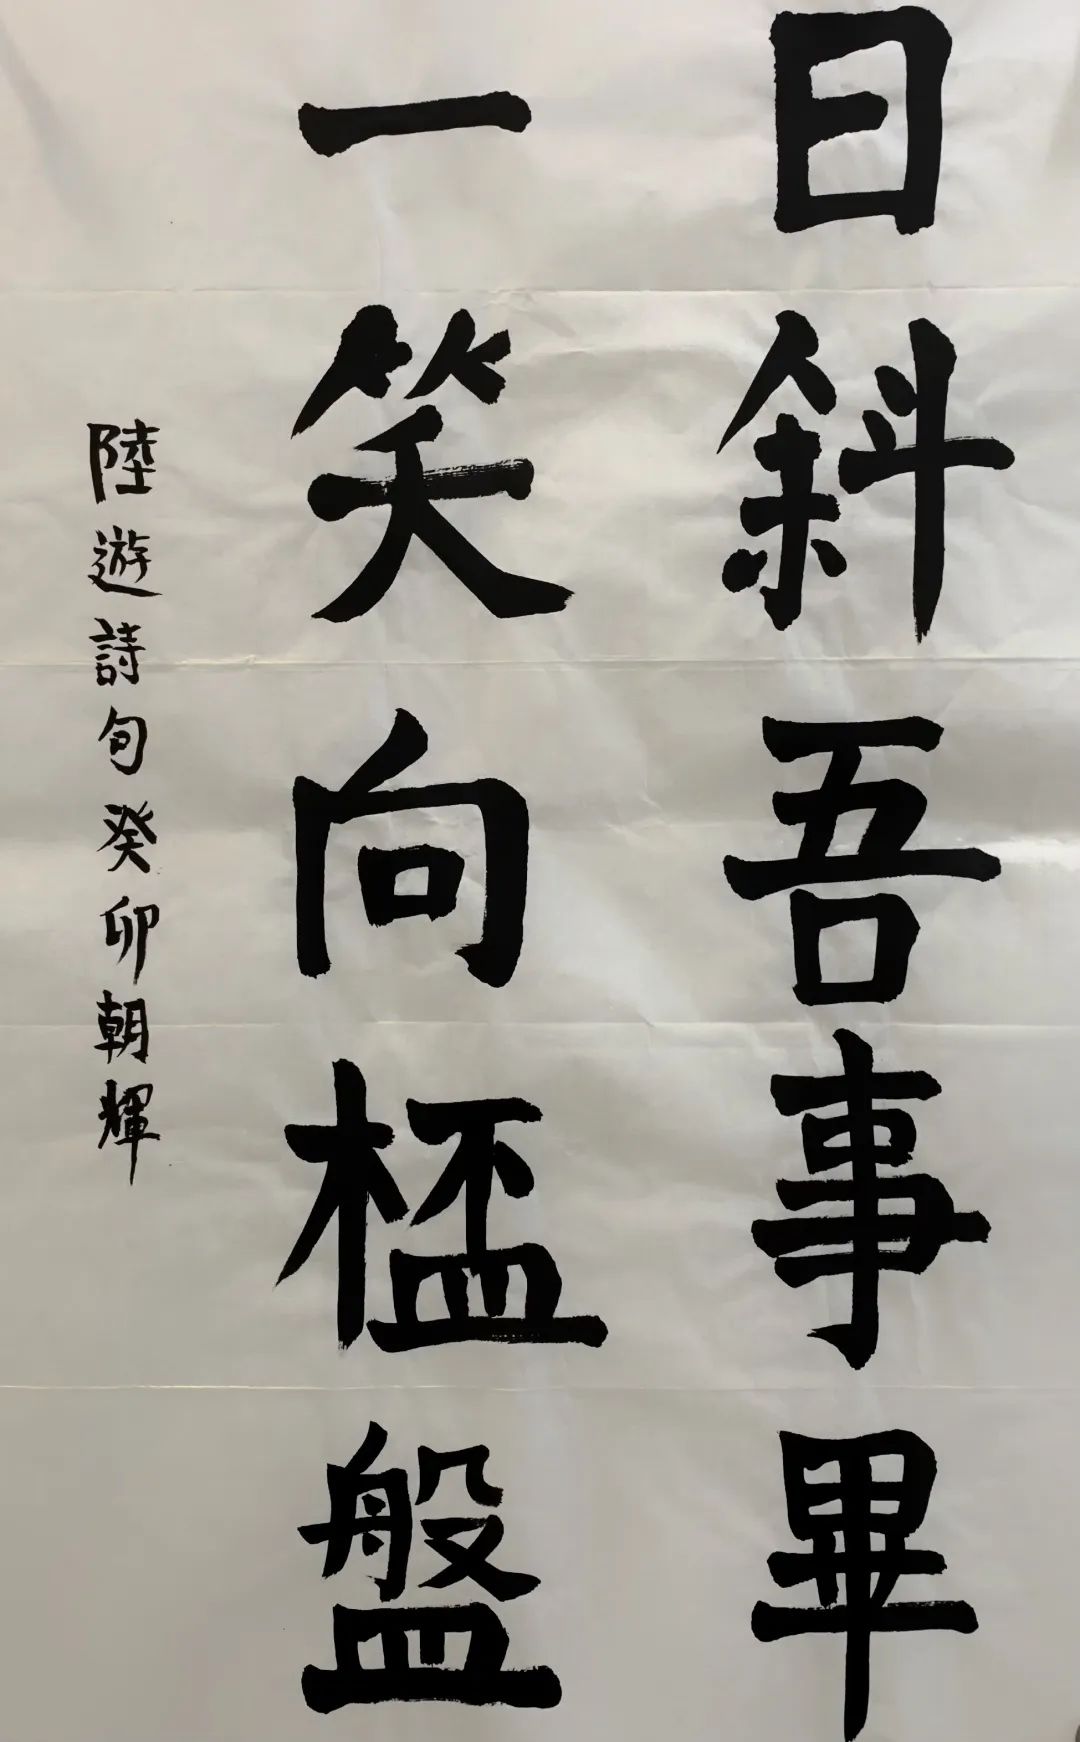 日斜吾事畢
一笑向桮盤
陸遊詩句癸卯朝輝